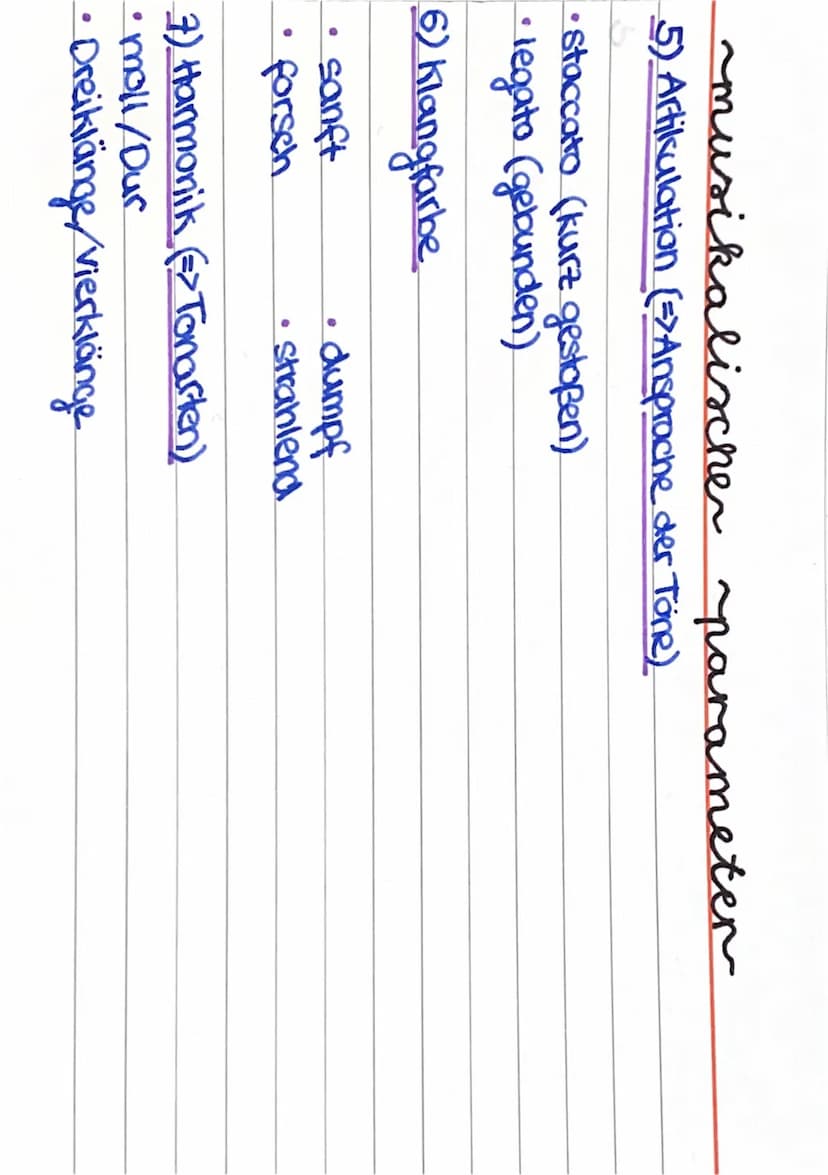 musikalischer parameter
5) Artikulation (=> Ansprache der Töne)
• staccato (kurz gestoßen)
• legato (gebunden)
6) Klangfarbe
• sanft • dumpf
• forsch • strahlend
7) Harmonik (=> Tonarten)
• moll/Dur
• Dreiklänge/Vierklänge